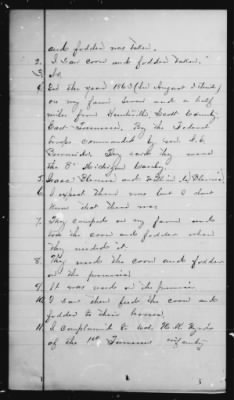 and fodder was taken.
2. I saw corn and fodder taken.
3. No.
4. In the year 1863 (in August I think)
on my farm Seven and a half
miles from Huntsville, Scott County
East Tennessee. By the Federal
troops commanded by
They said they were
the 8th Michigan Cavalry
5. Isaac and
6. I expect there was but I don't
know that there was
7. They camped on my farm and
took the corn and fodder when
they needed it.
8. They used the corn and fodder
on the premises
9. It was used on the premises.
10. I saw them feed the corn and
fodder to their horses.
11. I complained to Col.
of the 1st Tennessee infantry